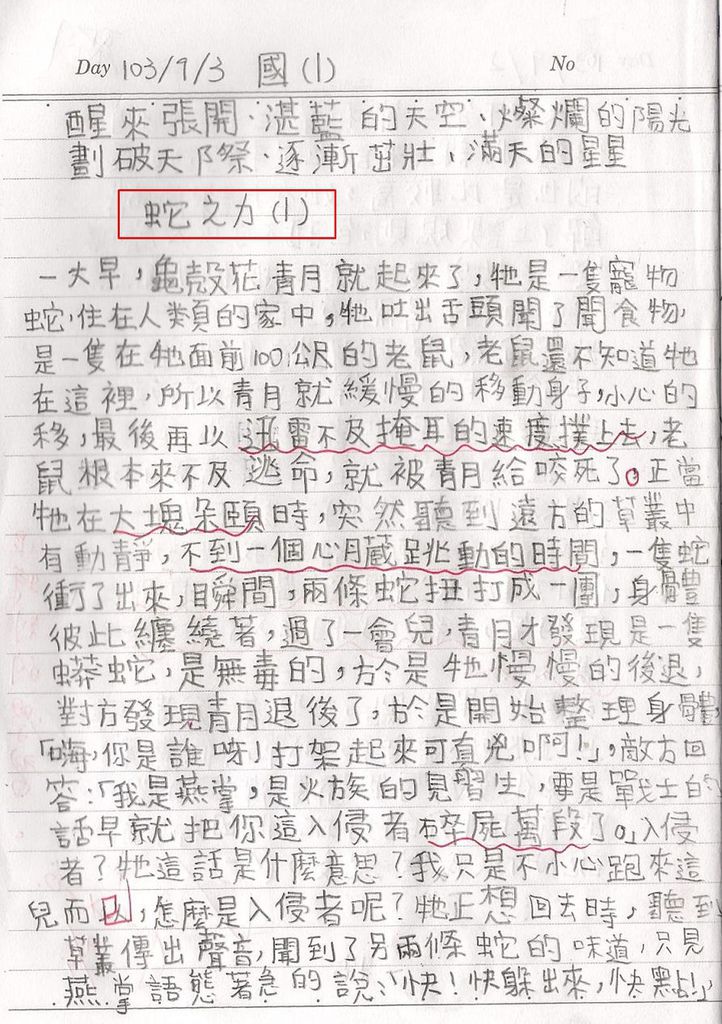 Day 103/9/3 國(1) No
醒來張開、湛藍的天空、燦爛的陽光
劃破天際、逐漸茁壯、滿天的星星
蛇之力(1)
一大早,龜殼花青月就起來了,牠是一隻寵物
蛇,住在人類的家中,牠吐出舌頭聞了聞食物,
是一隻在牠面前100公尺的老鼠,老鼠還不知道牠
在這裡,所以青月就緩慢的移動身子,小心的
移,最後再以迅雷不及掩耳的速度撲上去,老
鼠根本來不及逃命,就被青月給咬死了。正當
牠在大塊朵頤時,突然聽到遠方的草叢中
有動靜,不到一個心臟跳動的時間,一隻蛇
衝了出來,瞬間,兩條蛇扭打成一團,身體
彼此纏繞著,過了一會兒,青月才發現是一隻
蟒蛇,是無毒的,於是牠慢慢的後退,
對方發現青月退後了,於是開始整理身體,
「嗨,你是誰呀!打架起來可真兇啊!」,敵方回
答:「我是燕掌,是火族的見習生,要是戰士的
話早就把你這入侵者碎屍萬段了。」入侵
者?牠這話是什麼意思?我只是不小心跑來這
兒而已,怎麼是入侵者呢?牠正想回去時,聽到
草叢傳出聲音,聞到了另兩條蛇的味道,只見
燕掌語態著急的說:「快!快躲出來,快點!」,